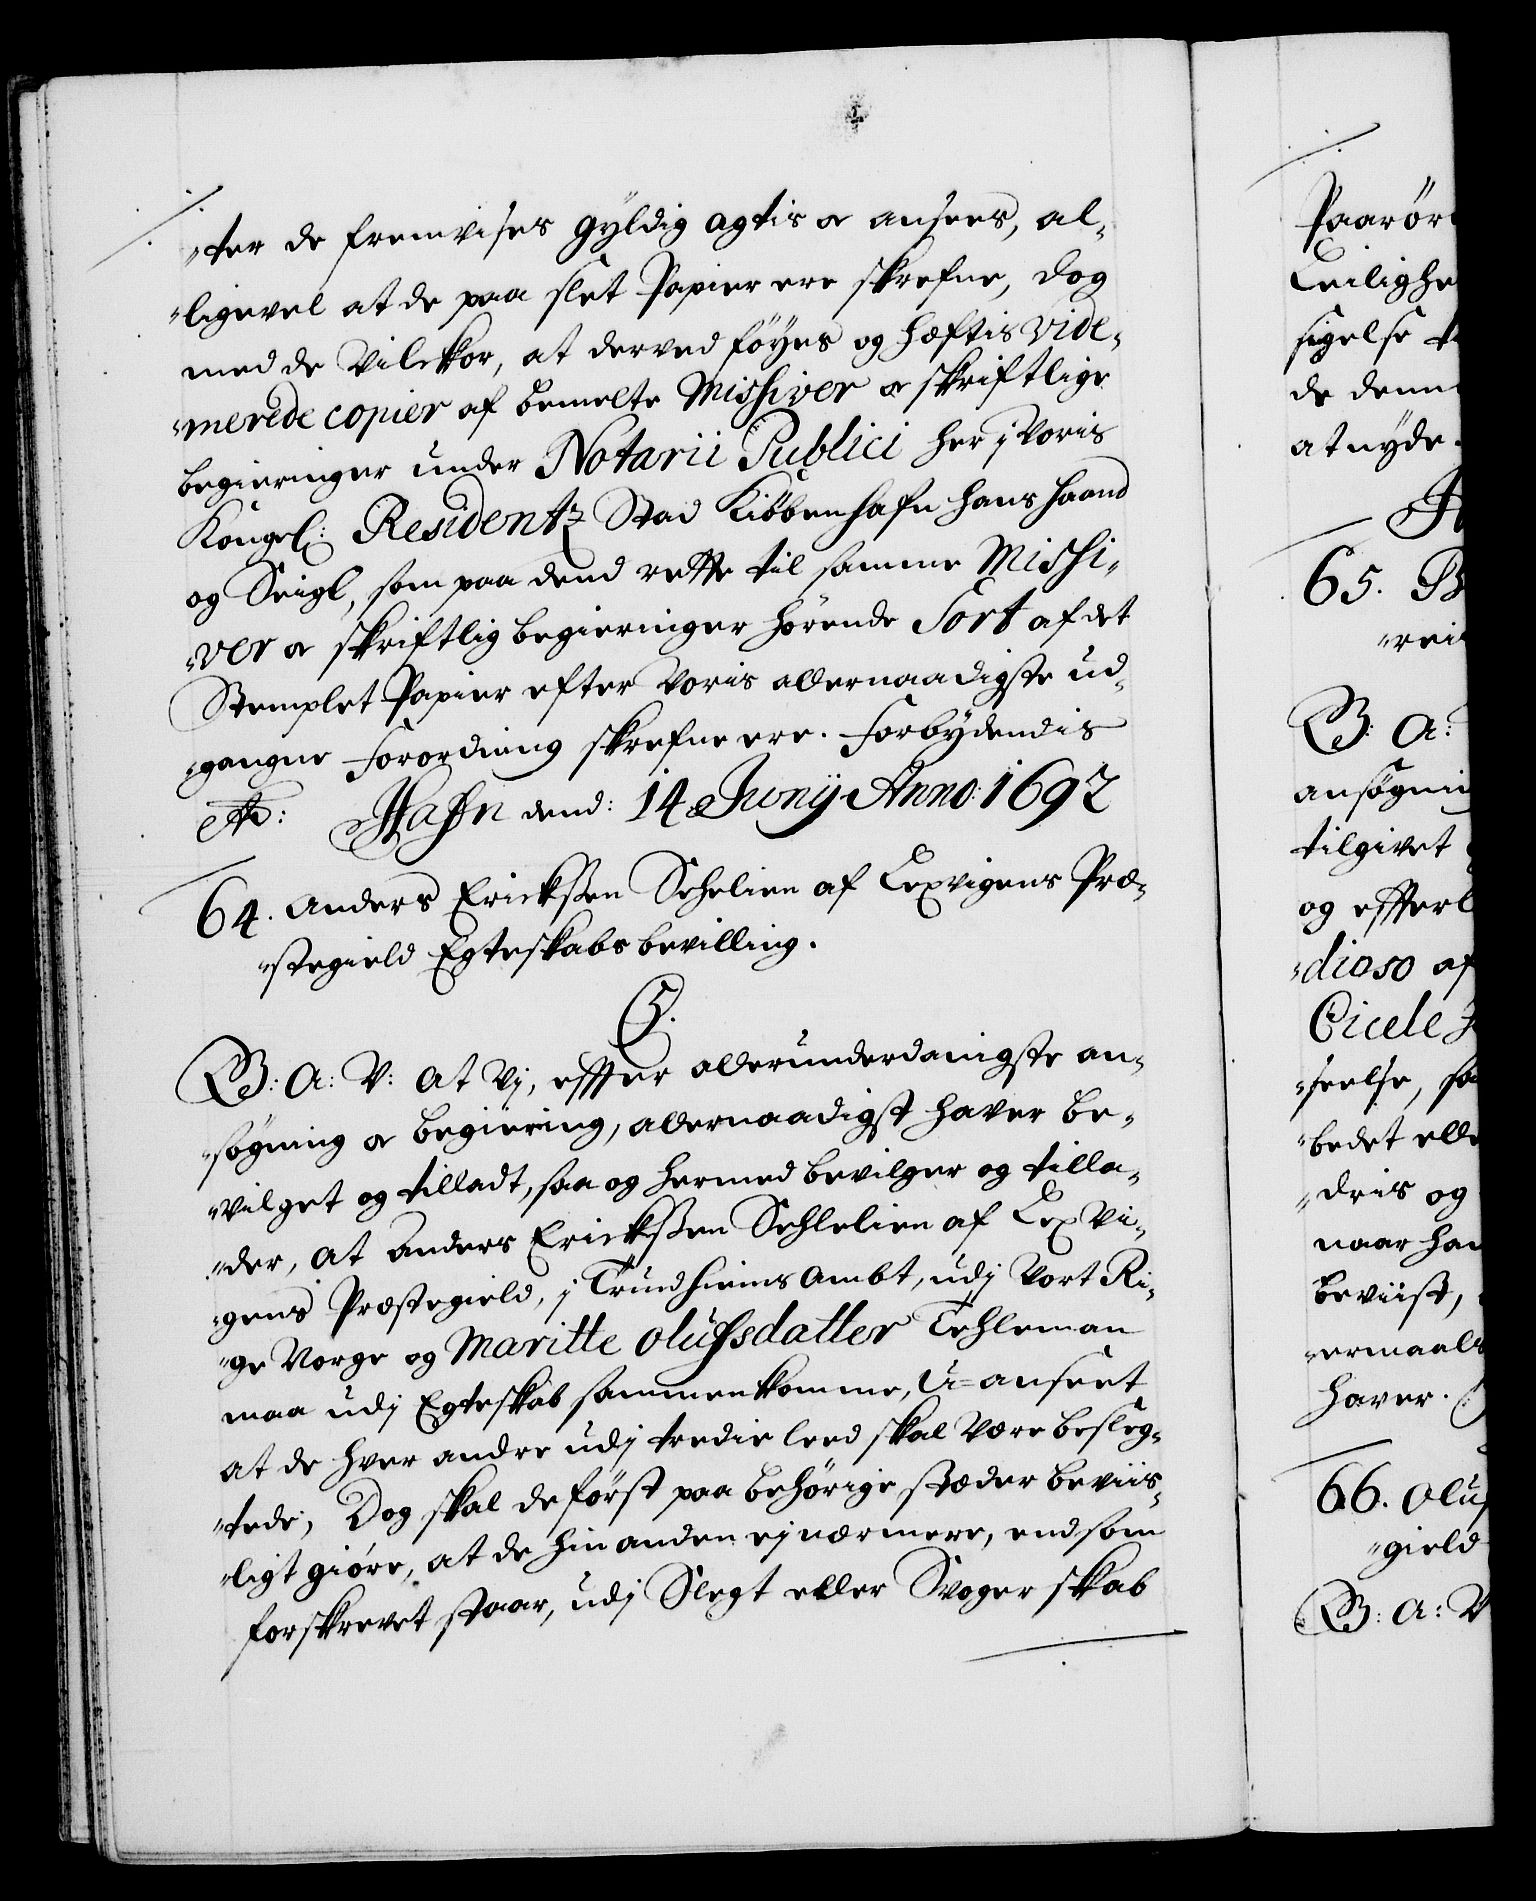 "ter de fremvises gyldig agtis og ansees, al-
"ligevel at de paa slet Papier ere skrefne, dog
med de Vilckor, at derved föyes og hæftis vide-
"merede copier af bemelte Missiver og skriftlige
begieringer under Notarii Publici her j Voris
Kongel: Residentz Stad Kiöbenhafn hans haand
og Seigl, som paa dend rette til samme Missi-
"ver og skriftlig begieringer hörende Sort af det
Stemplet Papier efter Voris allernaadigste ud-
"gangne Forordning skrefne ere. Forbydendis
etc: Hafn dend: 14 Junij Anno: 1692
64. Anders Erickßen Schelien af Lexvigens Præ-
"stegield Egteskabs bevilling.
C5.
B: A: V: At Vj, effter allerunderdanigste an-
"søgning og begiering, allernaadigst haver be-
"vilget og tilladt, saa og hermed bevilger og tilla-
"der, at Anders Erickßen Schlelien af Lexvi-
"gens Præstegield, j Trundhiems Ambt, udj Vort Ri-
"ge Norge og Maritte Olufsdatter Tehleman
maa udj Egteskab sammenkomme, U-anseet
at de hver andre udj tredie leed skal Være besleg-
"tede, Dog skal de först paa behörige stæder beviis-
"ligt giöre, at de hin anden ej nærmere, end som
forskrevet staar, udj Slegt eller Svogerskab
Paarör
Leilighe
sigelse t
de denn
at nyde.
H
65. B
"rei
B: A:
ansøgnin
tilgivet
og effterl
"dioso af
Cicele
"seelse, sa
"bedet elle
"dris og
naar han
beviist,
"ermaals
haver.
66. Oluf
"gield
B: A: V